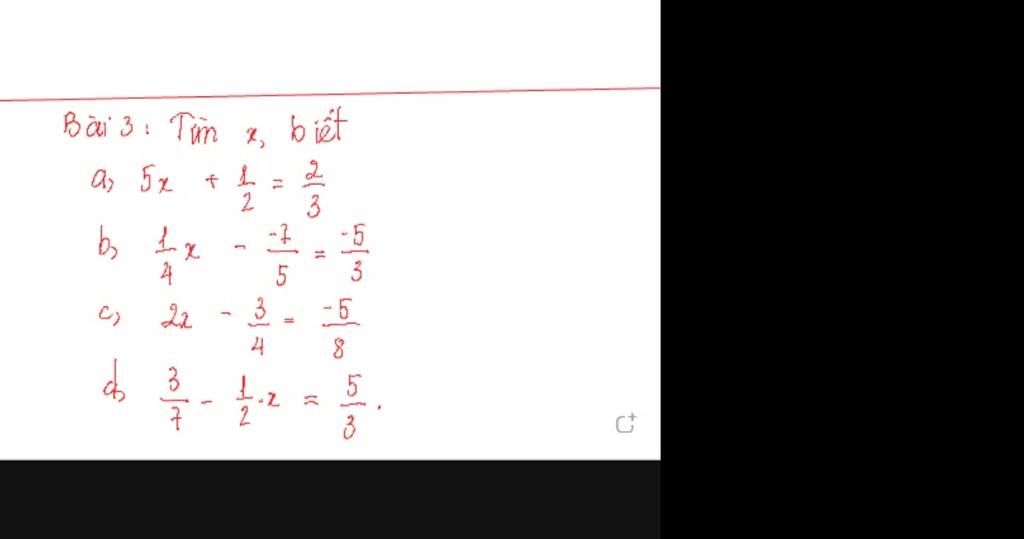 Bài 3: Tìm x, biết
a, 5x + 1/2 = 2/3
b, 1/4 x - -7/5 = -5/3
c, 2x - 3/4 = -5/8
d, 3/7 - 1/2 . x = 5/3 .